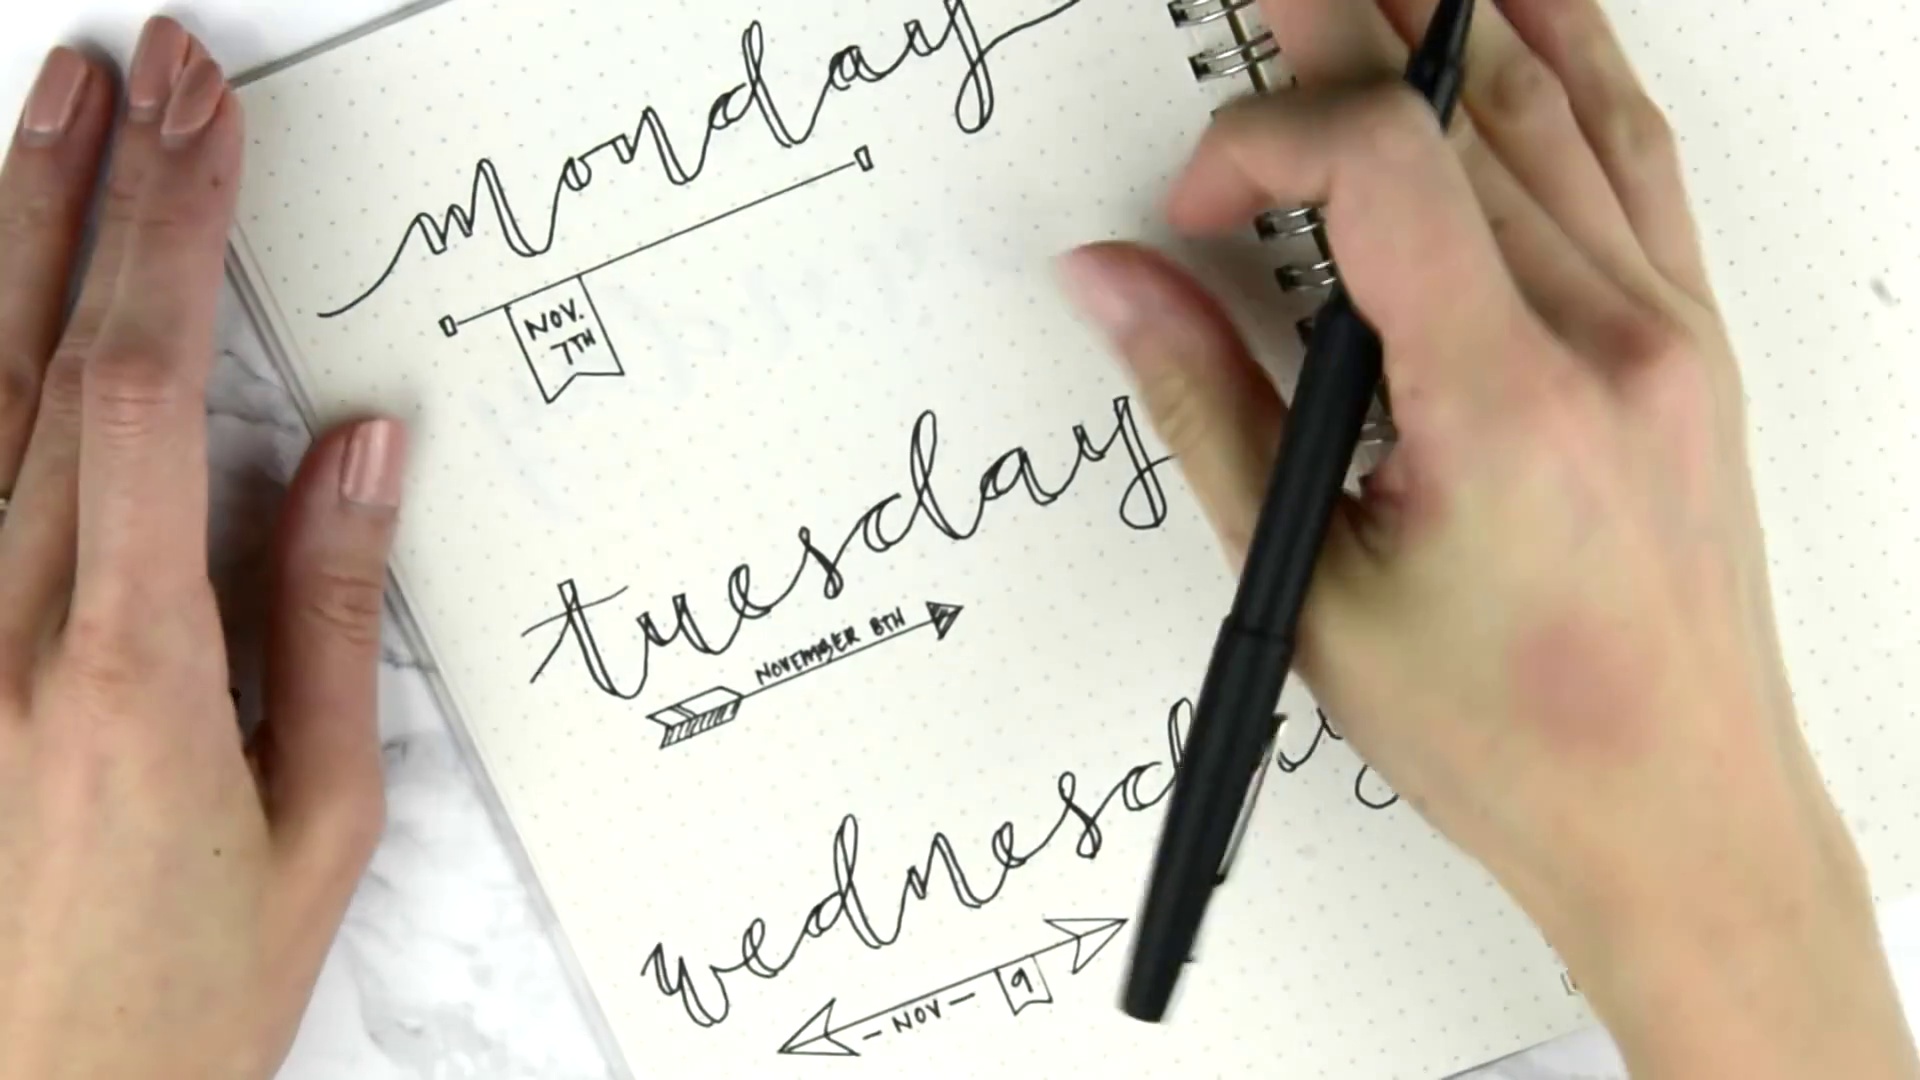 monday
NOV.
7TH
tuesday
NOVEMBER 8TH
wednesday
- NOV - 9